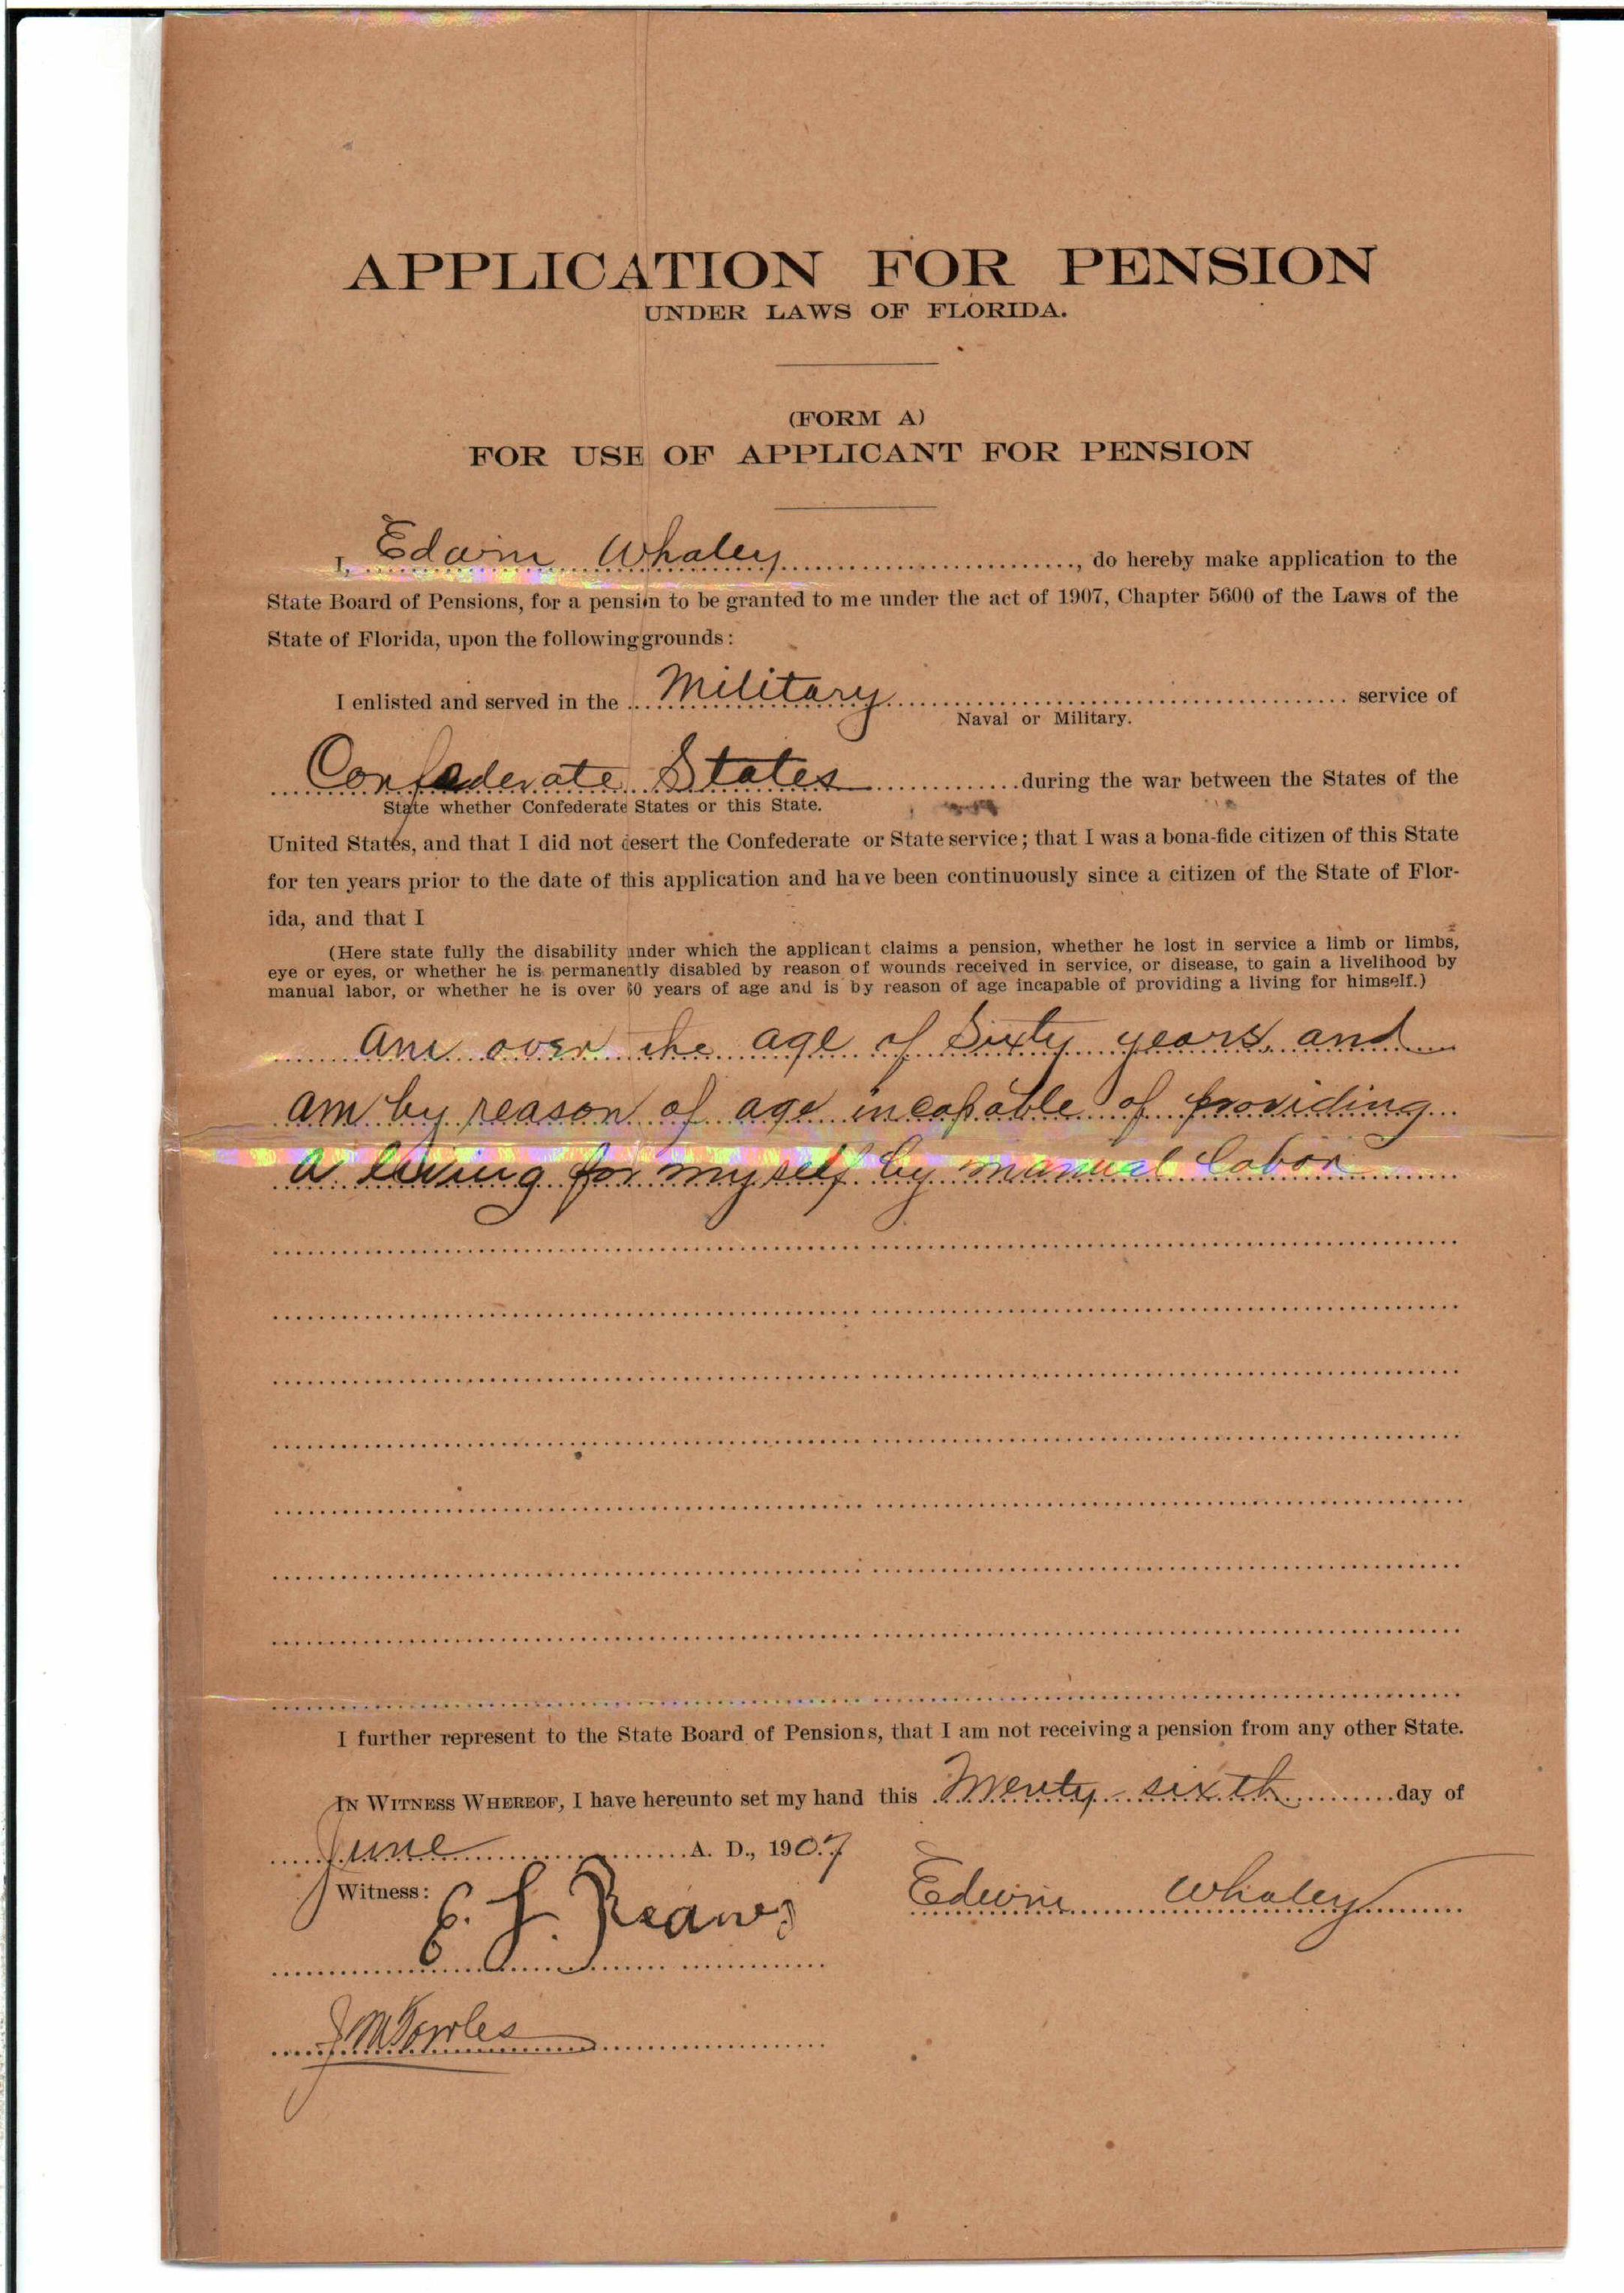 APPLICATION FOR PENSION
UNDER LAWS OF FLORIDA.
(FORM A)
FOR USE OF APPLICANT FOR PENSION
I, Edwin Whaley, do hereby make application to the
State Board of Pensions, for a pension to be granted to me under the act of 1907, Chapter 5600 of the Laws of the
State of Florida, upon the following grounds:
I enlisted and served in the Military service of
Naval or Military.
Confederate States during the war between the States of the
State whether Confederate States or this State.
United States, and that I did not desert the Confederate or State service; that I was a bona-fide citizen of this State
for ten years prior to the date of this application and have been continuously since a citizen of the State of Flor-
ida, and that I
(Here state fully the disability under which the applicant claims a pension, whether he lost in service a limb or limbs,
eye or eyes, or whether he is permanently disabled by reason of wounds received in service, or disease, to gain a livelihood by
manual labor, or whether he is over 60 years of age and is by reason of age incapable of providing a living for himself.)
am over the age of Sixty years, and
am by reason of age incapable of providing
a living for myself by manual labor
I further represent to the State Board of Pensions, that I am not receiving a pension from any other State.
IN WITNESS WHEREOF, I have hereunto set my hand this Twenty sixth day of
June A. D., 1907
Witness: Edwin Whaley